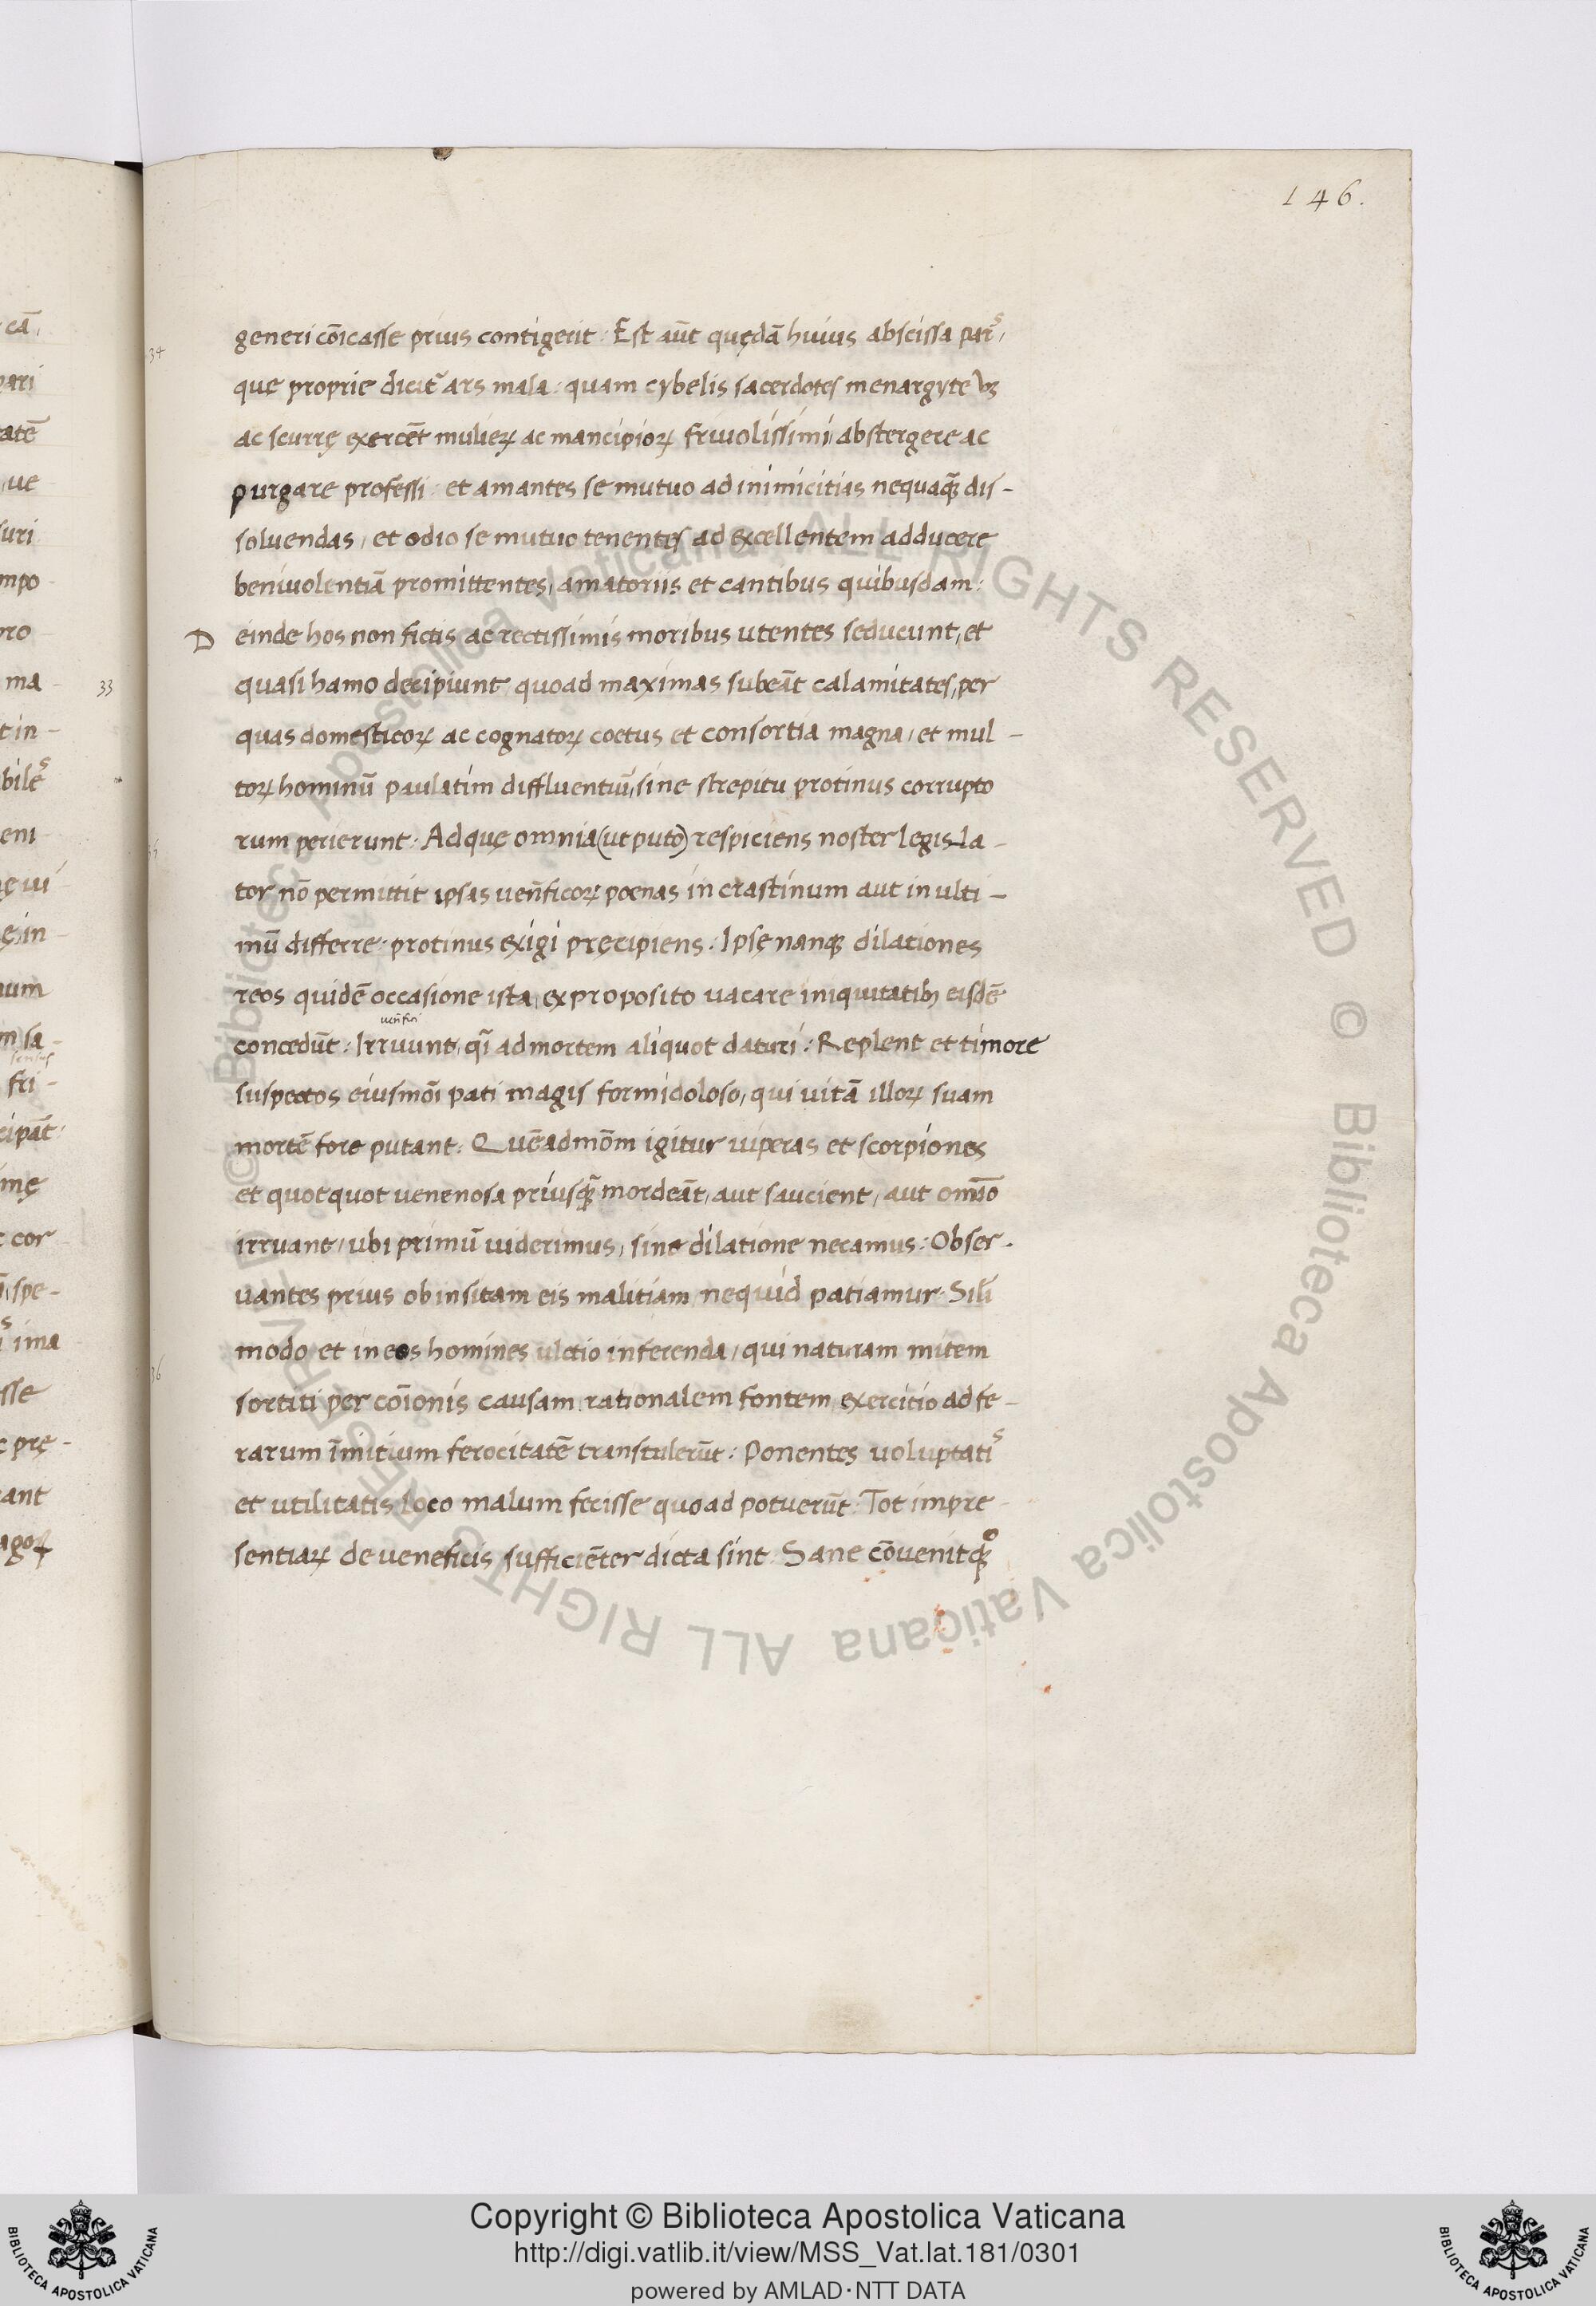 146.
generi cōicasse prius contigerit : Est aūt quędā huius abscissa pars,
que proprie dicit᷑ ars mala : quam cybelis sacerdotes menargyte
ac scurrę exercēt mulieꝝ ac mancipioꝝ friuolissimi, abstergere ac
purgare professi : et amantes se mutuo ad inimicitias nequaq̄ dis-
soluendas, et odio se mutuo tenentes ad excellentem adducere
beniuolentiā promittentes, amatoriis et cantibus quibusdam :
D einde hos non fictis ac rectissimis moribus utentes seducunt, et
33 quasi hamo decipiunt quoad maximas subeāt calamitates, per
quas domesticoꝝ ac cognatoꝝ coetus et consortia magna, et mul-
toꝝ hominū paulatim diffluentiū, sine strepitu protinus corrupto
rum perierunt : Ad quę omnia (ut puto) respiciens noster legis la-
tor nō permittit ipsas ueñficoꝝ poenas in crastinum aut in ulti-
mū differre : protinus exigi pręcipiens : Ipsę nanqꝫ dilationes
reos quidē occasione ista, ex proposito uacare iniquitatibꝫ eisdē
concedūt : Irruunt, qī ad mortem aliquot daturi : Replent et timore
suspectos eiusmōi pati magis formidoloso, qui uitā illoꝝ suam
mortē fore putant : Quēadmōm igitur uiperas et scorpiones
et quotquot uenenosa priusq̄ mordeāt, aut saucient, aut omīo
irruant, ubi primū uiderimus, sine dilatione necamus : Obser-
uantes prius ob insitam eis malitiam, nequid patiamur. Sili
modo et in eos homines ultio inferenda, qui naturam mitem
sortiti per cōionis causam rationalem fontem, exercitio ad fe-
rarum īmitium ferocitatē transtulerūt : Ponentes uoluptatis
et utilitatis loco malum fecisse quoad potuerūt : Tot impre-
sentiaꝝ de ueneficis sufficiēter dicta sint : Sane cōuenit
34
36
Copyright © Biblioteca Apostolica Vaticana
http://digi.vatlib.it/view/MSS_Vat.lat.181/0301
powered by AMLAD·NTT DATA
BIBLIOTECA APOSTOLICA VATICANA
BIBLIOTECA APOSTOLICA VATICANA
© Biblioteca Apostolica Vaticana ALL RIGHTS RESERVED © Biblioteca Apostolica Vaticana ALL RIGHTS RESERVED